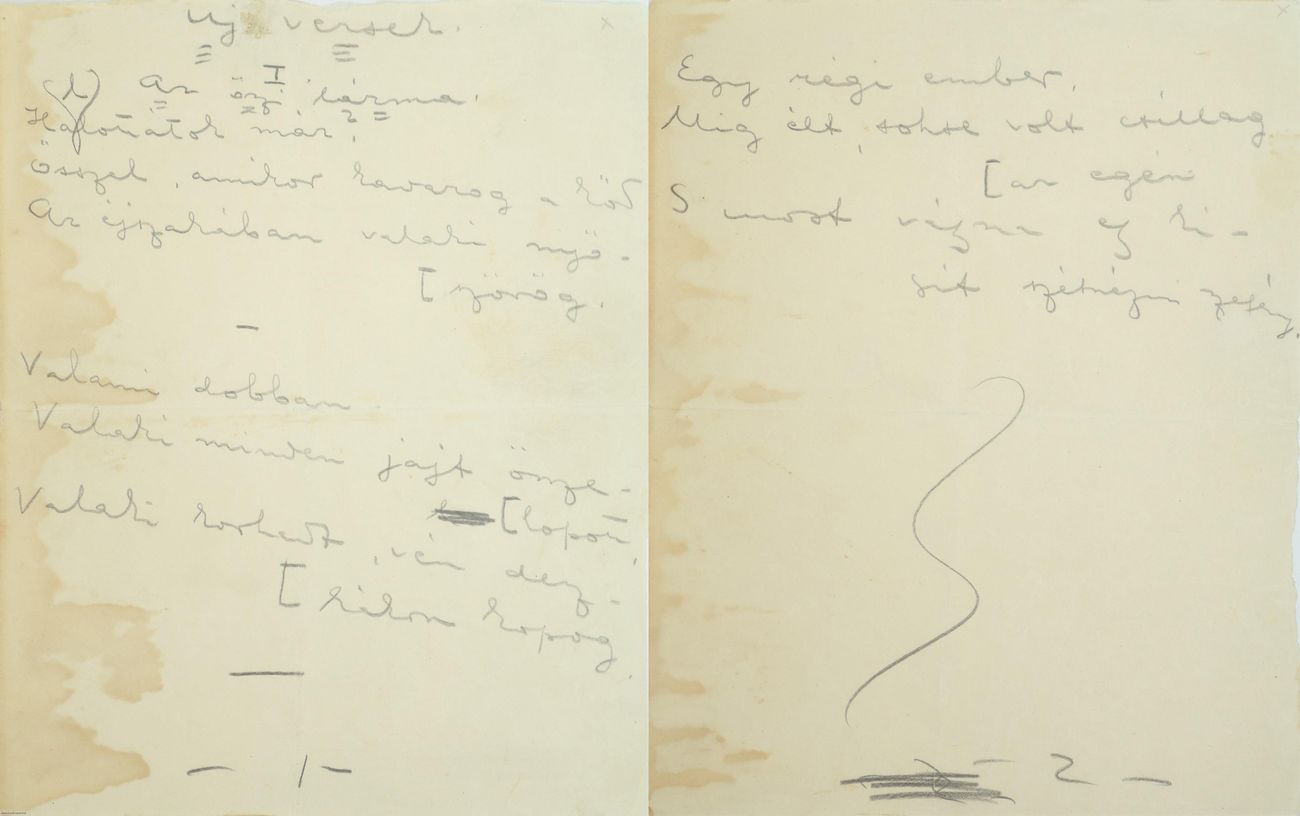 Uj versek.
I
(1) Az őszi lárma.
Hallottátok már?
Ősszel, amikor kavarog a köd
Az éjszakában valaki nyö-
[szörög.
–
Valami dobban
Valaki minden jajt össze-
[lopott,
Valaki korhadt, vén desz-
[kákon kopog.
—
– 1 –
Egy régi ember,
Mig élt, sohse volt csillag
[az egén
S most vágyna egy ki-
sit szétnézni szegény.
– 2 –